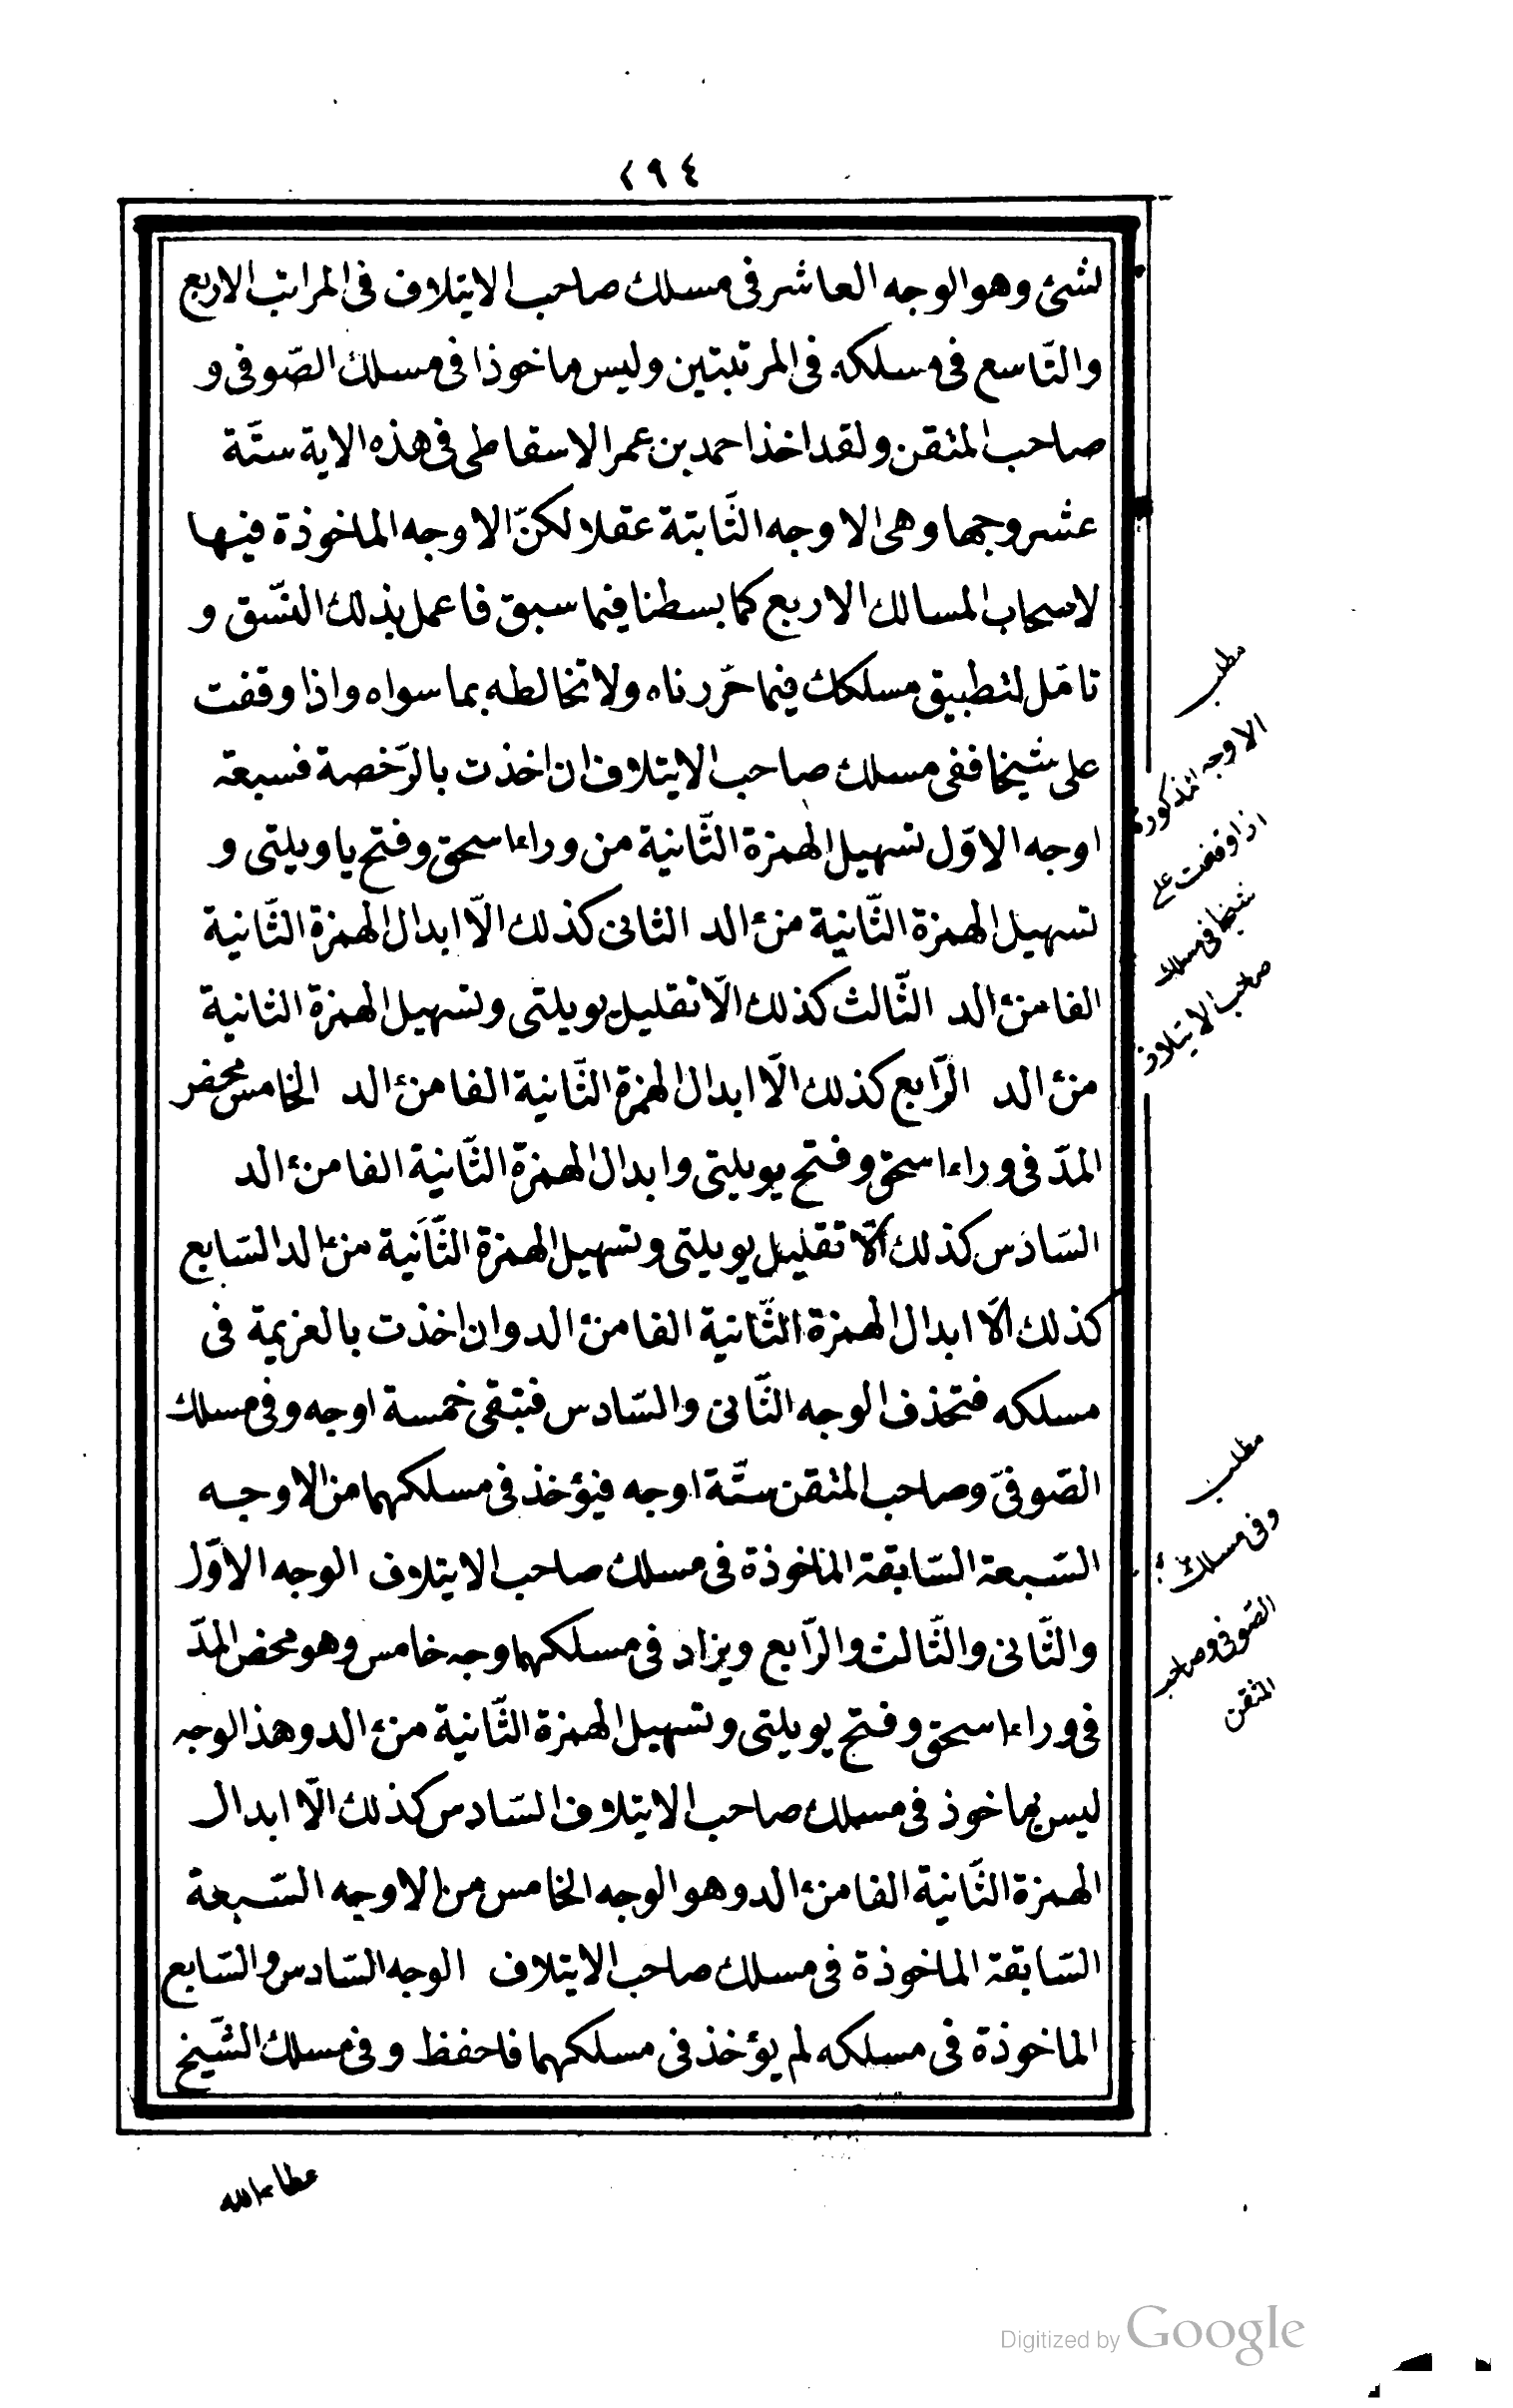 ٢٩٤
لشئ وهو الوجه العاشر فى مسلك صاحب الايتلاف فى المراتب الاربع
والتّاسع فى مسلكه فى المرتبتين وليس ماخوذا فى مسلك الصّوفى و
صاحب المتقن ولقد اخذ احمد بن عمر الاسقاطى فى هذه الاية ستّة
عشر وجها وهى الاوجه الثّابتة عقلا لكنّ الاوجه الماخوذة فيها
لاصحاب المسالك الاربع كما بسطنا فيما سبق فاعمل بذلك النسّق و
تامّل لتطبيق مسلكك فيما حرّرناه ولا تخالطه بما سواه واذا وقفت
على شيخا ففى مسلك صاحب الايتلاف ان اخذت بالرّخصة فسبعة
اوجه الاوّل تسهيل الهمزة الثّانية من وراء اسحق وفتح ياويلتى و
تسهيل الهمزة الثّانية من ءالد الثانى كذلك الّا ابدال الهمزة الثّانية
الفا من ءالد الثّالث كذلك الّا تقليل يويلتى وتسهيل الهمزة الثانية
من ءالد الرّابع كذلك الّا ابدال الهمزة الثّانية الفا من ءالد الخامس محض
المدّ فى وراء اسحق وفتح يويلتى وابدال الهمزة الثّانية الفا من ءالد
السّادس كذلك الّا تقليل يويلتى وتسهيل الهمزة الثّانية من ءالد السّابع
كذلك الّا ابدال الهمزة الثّانية الفا من ءالد وان اخذت بالعزيمة فى
مسلكه فتحذف الوجه الثّانى والسّادس فتبقى خمسة اوجه وفى مسلك
الصّوفىّ وصاحب المتقن ستّة اوجه فيؤخذ فى مسلكهما من الاوجه
السّبعة السّابقة الماخوذة فى مسلك صاحب الايتلاف الوجه الاوّل
والثّانى والثّالث والرّابع ويزاد فى مسلكهما وجه خامس وهو محض المدّ
فى وراء اسحق وفتح يويلتى وتسهيل الهمزة الثّانية من ءالد وهذ الوجه
ليس بماخوذ فى مسلك صاحب الايتلاف السّادس كذلك الّا ابدال
الهمزة الثّانية الفا من ءالد وهو الوجه الخامس من الاوجه السّبعة
السّابقة الماخوذة فى مسلك صاحب الايتلاف الوجه السّادس والسّابع
الماخوذة فى مسلكه لم يؤخذ فى مسلكهما فاحفظ وفى مسلك الشّيخ
مطلب
الاوجه المذكورة
اذا وقفت على
شيخا فى مسلك
صاحب الايتلاف
مطلب
وفى مسلك
الصّوفى وصاحب
المتقن
عطاء الله
Digitized by Google